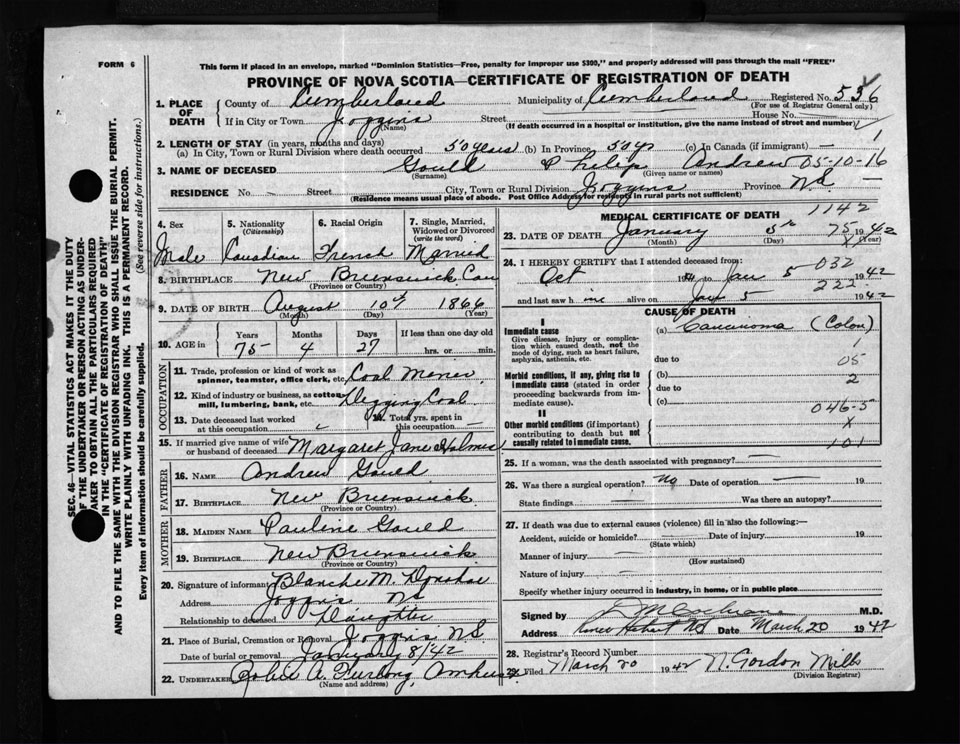 FORM 6
This form if placed in an envelope, marked "Dominion Statistics—Free, penalty for improper use $300," and properly addressed will pass through the mail "FREE"
PROVINCE OF NOVA SCOTIA—CERTIFICATE OF REGISTRATION OF DEATH
1. PLACE OF DEATH County of Cumberland Municipality of Cumberland Registered No. 536
(For use of Registrar General only)
If in City or Town Joggins Street House No.
(Name) (If death occurred in a hospital or institution, give the name instead of street and number)
2. LENGTH OF STAY (in years, months and days) 1
(a) In City, Town or Rural Division where death occurred 50 years (b) In Province 50 ys (c) In Canada (if immigrant) —
3. NAME OF DECEASED Gould Philip Andrew 05-10-16
(Surname) (Given name or names)
RESIDENCE No. — Street City, Town or Rural Division Joggins Province N.S. —
(Residence means usual place of abode. Post Office Address for residents in rural parts not sufficient)
4. Sex 5. Nationality (Citizenship) 6. Racial Origin 7. Single, Married, Widowed or Divorced (write the word)
Male Canadian French Married
8. BIRTHPLACE New Brunswick Can
(Province or Country)
9. DATE OF BIRTH August 10th 1866
(Month) (Day) (Year)
10. AGE in Years Months Days If less than one day old
75 4 27 hrs. or min.
OCCUPATION
11. Trade, profession or kind of work as spinner, teamster, office clerk, etc. Coal Miner
12. Kind of industry or business, as cotton mill, lumbering, bank, etc. Digging Coal
13. Date deceased last worked at this occupation 14. Total yrs. spent in this occupation —
15. If married give name of wife or husband of deceased Margaret Jane Holmes
FATHER
16. NAME Andrew Gould
17. BIRTHPLACE New Brunswick
(Province or Country)
MOTHER
18. MAIDEN NAME Pauline Gould
19. BIRTHPLACE New Brunswick
(Province or Country)
20. Signature of informant Blanche M. Donahoe
Address Joggins NS
Relationship to deceased Daughter
21. Place of Burial, Cremation or Removal Joggins N.S.
Date of burial or removal January 8/42
22. UNDERTAKER Robie A. Furlong, Amherst
(Name and address)
MEDICAL CERTIFICATE OF DEATH 1142
23. DATE OF DEATH January 5th 75 1942
(Month) (Day) (Year)
24. I HEREBY CERTIFY that I attended deceased from: 032
Oct 1941 to Jan 5 1942
222
and last saw him alive on Jan 5 1942
CAUSE OF DEATH
I
Immediate cause (a) Carcinoma (Colon)
Give disease, injury or complication which caused death, not the mode of dying, such as heart failure, asphyxia, asthenia, etc.
1
due to 05
Morbid conditions, if any, giving rise to immediate cause (stated in order proceeding backwards from immediate cause).
(b) 2
due to
(c) 046-5
II
Other morbid conditions (if important) contributing to death but not causally related to immediate cause.
x
101
25. If a woman, was the death associated with pregnancy? —
26. Was there a surgical operation? no Date of operation — 19
State findings Was there an autopsy?
27. If death was due to external causes (violence) fill in also the following:—
Accident, suicide or homicide? Date of injury 19
(State which)
Manner of injury —
(How sustained)
Nature of injury —
Specify whether injury occurred in industry, in home, or in public place
Signed by D M Cochrane M.D.
Address River Hebert NS Date March 20 1942
28. Registrar's Record Number
29. Filed March 20 1942 N. Gordon Mills
(Division Registrar)
SEC. 46—VITAL STATISTICS ACT MAKES IT THE DUTY
OF THE UNDERTAKER OR PERSON ACTING AS UNDERTAKER TO OBTAIN ALL THE PARTICULARS REQUIRED
IN THE "CERTIFICATE OF REGISTRATION OF DEATH"
AND TO FILE THE SAME WITH THE DIVISION REGISTRAR WHO SHALL ISSUE THE BURIAL PERMIT.
WRITE PLAINLY WITH UNFADING INK. THIS IS A PERMANENT RECORD.
Every item of information should be carefully supplied. (See reverse side for instructions.)